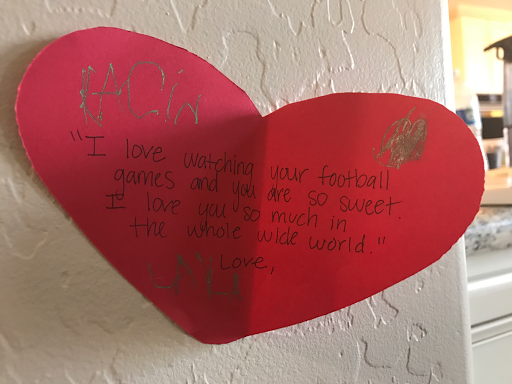 "I love watching your football
games and you are so sweet.
I love you so much in
the whole wide world."
Love,